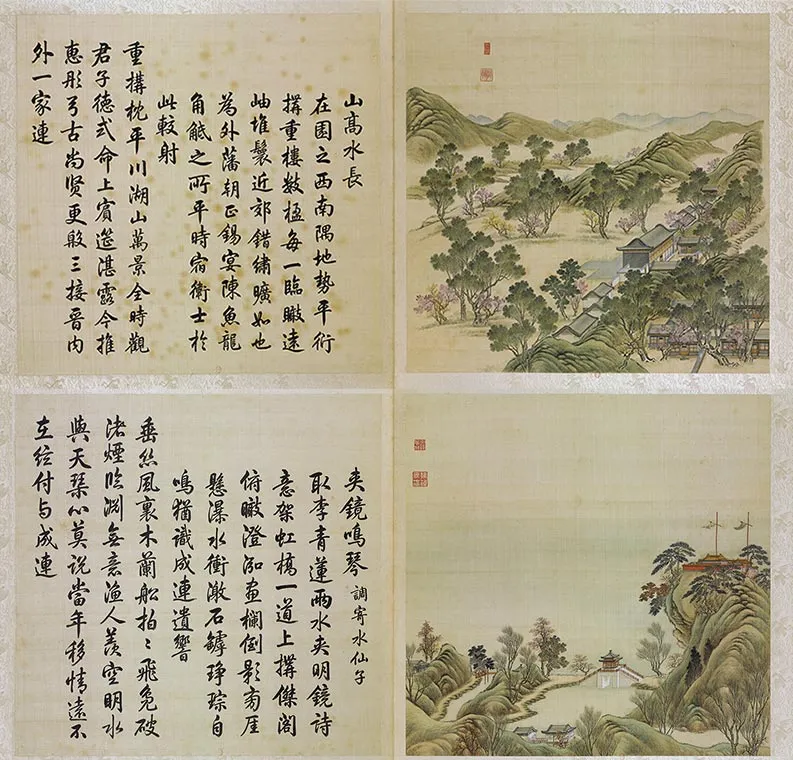 山高水長
在園之西南隅地勢平衍
搆重樓數楹每一臨瞰遠
岫堆鬟近郊錯繡曠如也
為外藩朝正錫宴陳魚龍
角觝之所平時宿衛士於
此較射
重搆枕平川湖山萬景全時觀
君子德式命上賓筵湛露今推
惠彤弓古尚賢更殷三接晉内
外一家連
夾鏡鳴琴 調寄水仙子
取李青蓮兩水夾明鏡詩
意架虹橋一道上搆傑閣
俯瞰澄泓畫欄倒影旁厓
懸瀑水衝激石罅琤琮自
鳴猶識成連遺響
垂絲風裏木蘭船拍〻飛鳧破
渚煙臨淵無意漁人羨空明水
與天琴心莫說當年移情遠不
在絃付与成連